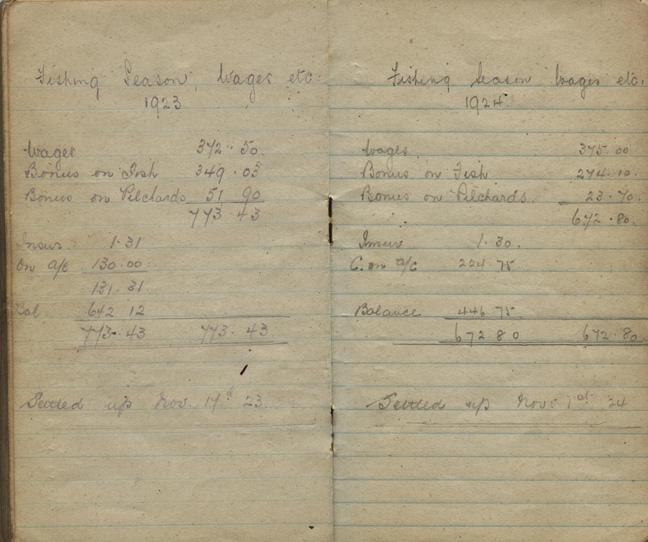 Fishing Season, Wages etc.
1923
Wages 372.50
Bonus on Fish 349.03
Bonus on Pilchards 51 90
773 43
Insur 1.31
On a/c 130.00
131.31
Bal 642 12
773.43 773.43
Settled up Nov. 17th 23
Fishing Season Wages etc.
1924
Wages 375.00
Bonus on Fish 274.10
Bonus on Pilchards 23.70
672.80
Insur 1.30
C. on a/c 224.75
Balance 446.75
672 80 672.80
Settled up Nov 1st 24